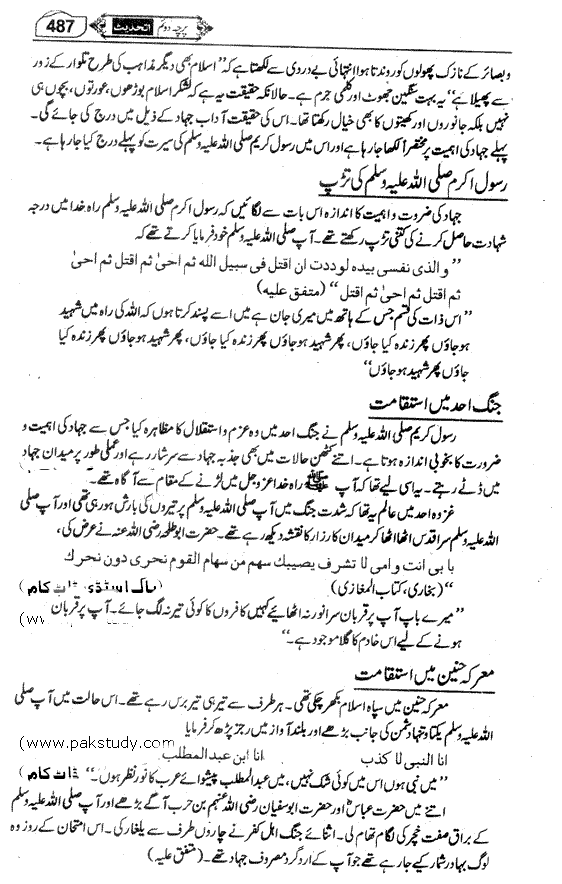 487 پرچہ دوئم اتحدیث
وبصائر کے نازک پھولوں کو روندتا ہوا انتہائی بے دردی سے لکھتا ہے کہ "اسلام بھی دیگر مذاہب کی طرح تلوار کے زور
سے پھیلا ہے" یہ بہت سنگین جھوٹ اور قلمی جرم ہے۔ حالانکہ حقیقت یہ ہے کہ لشکر اسلام بوڑھوں، عورتوں، بچوں ہی
نہیں بلکہ جانوروں اور کھیتوں کا بھی خیال رکھتا تھا۔ اس کی حقیقت آداب جہاد کے ذیل میں درج کی جائے گی۔
پہلے جہاد کی اہمیت پر مختصراً لکھا جا رہا ہے اور اس میں رسول کریم صلی اللہ علیہ وسلم کی سیرت کو پہلے درج کیا جا رہا ہے۔
رسول اکرم صلی اللہ علیہ وسلم کی تڑپ
جہاد کی ضرورت و اہمیت کا اندازہ اس بات سے لگائیں کہ رسول اکرم صلی اللہ علیہ وسلم راہ خدا میں درجہ
شہادت حاصل کرنے کی کتنی تڑپ رکھتے تھے۔ آپ صلی اللہ علیہ وسلم خود فرمایا کرتے تھے کہ
"و الذی نفسی بیدہ لوددت ان اقتل فی سبیل اللہ ثم احیٰ ثم اقتل ثم احیٰ
ثم اقتل ثم احیٰ ثم اقتل" (متفق علیہ)
"اس ذات کی قسم جس کے ہاتھ میں میری جان ہے میں اسے پسند کرتا ہوں کہ اللہ کی راہ میں شہید
ہو جاؤں پھر زندہ کیا جاؤں، پھر شہید ہو جاؤں پھر زندہ کیا جاؤں، پھر شہید ہو جاؤں پھر زندہ کیا
جاؤں پھر شہید ہو جاؤں"
جنگ احد میں استقامت
رسول کریم صلی اللہ علیہ وسلم نے جنگ احد میں وہ عزم و استقلال کا مظاہرہ کیا جس سے جہاد کی اہمیت و
ضرورت کا بخوبی اندازہ ہوتا ہے۔ اتنے کٹھن حالات میں بھی جذبہ جہاد سے سرشار رہے اور عملی طور پر میدان جہاد
میں ڈٹے رہتے۔ یہ اسی لیے تھا کہ آپ ﷺ راہ خدا عزوجل میں لڑنے کے مقام سے آگاہ تھے۔
غزوہ احد میں عالم یہ تھا کہ شدت جنگ میں آپ صلی اللہ علیہ وسلم پر تیروں کی بارش ہو رہی تھی اور آپ صلی
اللہ علیہ وسلم سر اقدس اٹھا اٹھا کر میدان کارزار کا نقشہ دیکھ رہے تھے۔ حضرت ابو طلحہ رضی اللہ عنہ نے عرض کی،
بابی انت وامی لا تشرف یصیبك سهم من سهام القوم نحری دون نحرك
"(بخاری، کتاب المغازی) (پاک اسٹڈی ڈاٹ کام
"میرے باپ آپ پر قربان سر انور نہ اٹھائیے کہیں کافروں کا کوئی تیر نہ لگ جائے۔ آپ پر قربان (w
ہونے کے لیے اس خادم کا گلا موجود ہے۔"
معرکہ حنین میں استقامت
معرکہ حنین میں سپاہ اسلام بکھر چکی تھی۔ ہر طرف سے تیر ہی تیر برس رہے تھے۔ اس حالت میں آپ صلی
اللہ علیہ وسلم یکتا و تنہا دشمن کی جانب بڑھے اور بلند آواز میں رجز پڑھ کر فرمایا
انا النبی لا کذب انا ابن عبدالمطلب (www.pakstudy.com
"میں نبی ہوں اس میں کوئی شک نہیں، میں عبدالمطلب پیشوائے عرب کا نور نظر ہوں۔" ڈاٹ کام)
اتنے میں حضرت عباسؓ اور حضرت ابو سفیان رضی اللہ عنہم بن حرب آگے بڑھے اور آپ صلی اللہ علیہ وسلم
کے براق صفت خچر کی لگام تھام لی۔ اثنائے جنگ اہل کفر نے چاروں طرف سے یلغار کی۔ اس امتحان کے روز وہ
لوگ بہادر شمار کیے جا رہے تھے جو آپ کے ارد گرد مصروف جہاد تھے۔ (متفق علیہ)